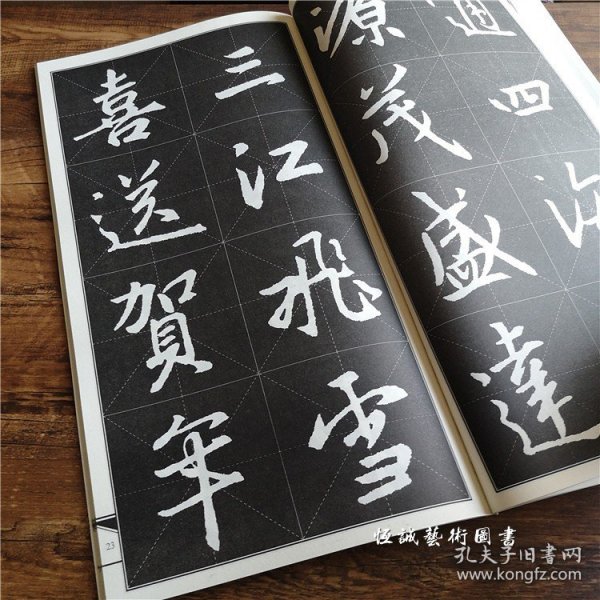 通四海
源茂盛達
三江飛雪
喜送賀年
23
恒誠藝術圖書
孔夫子旧书网
www.kongfz.com